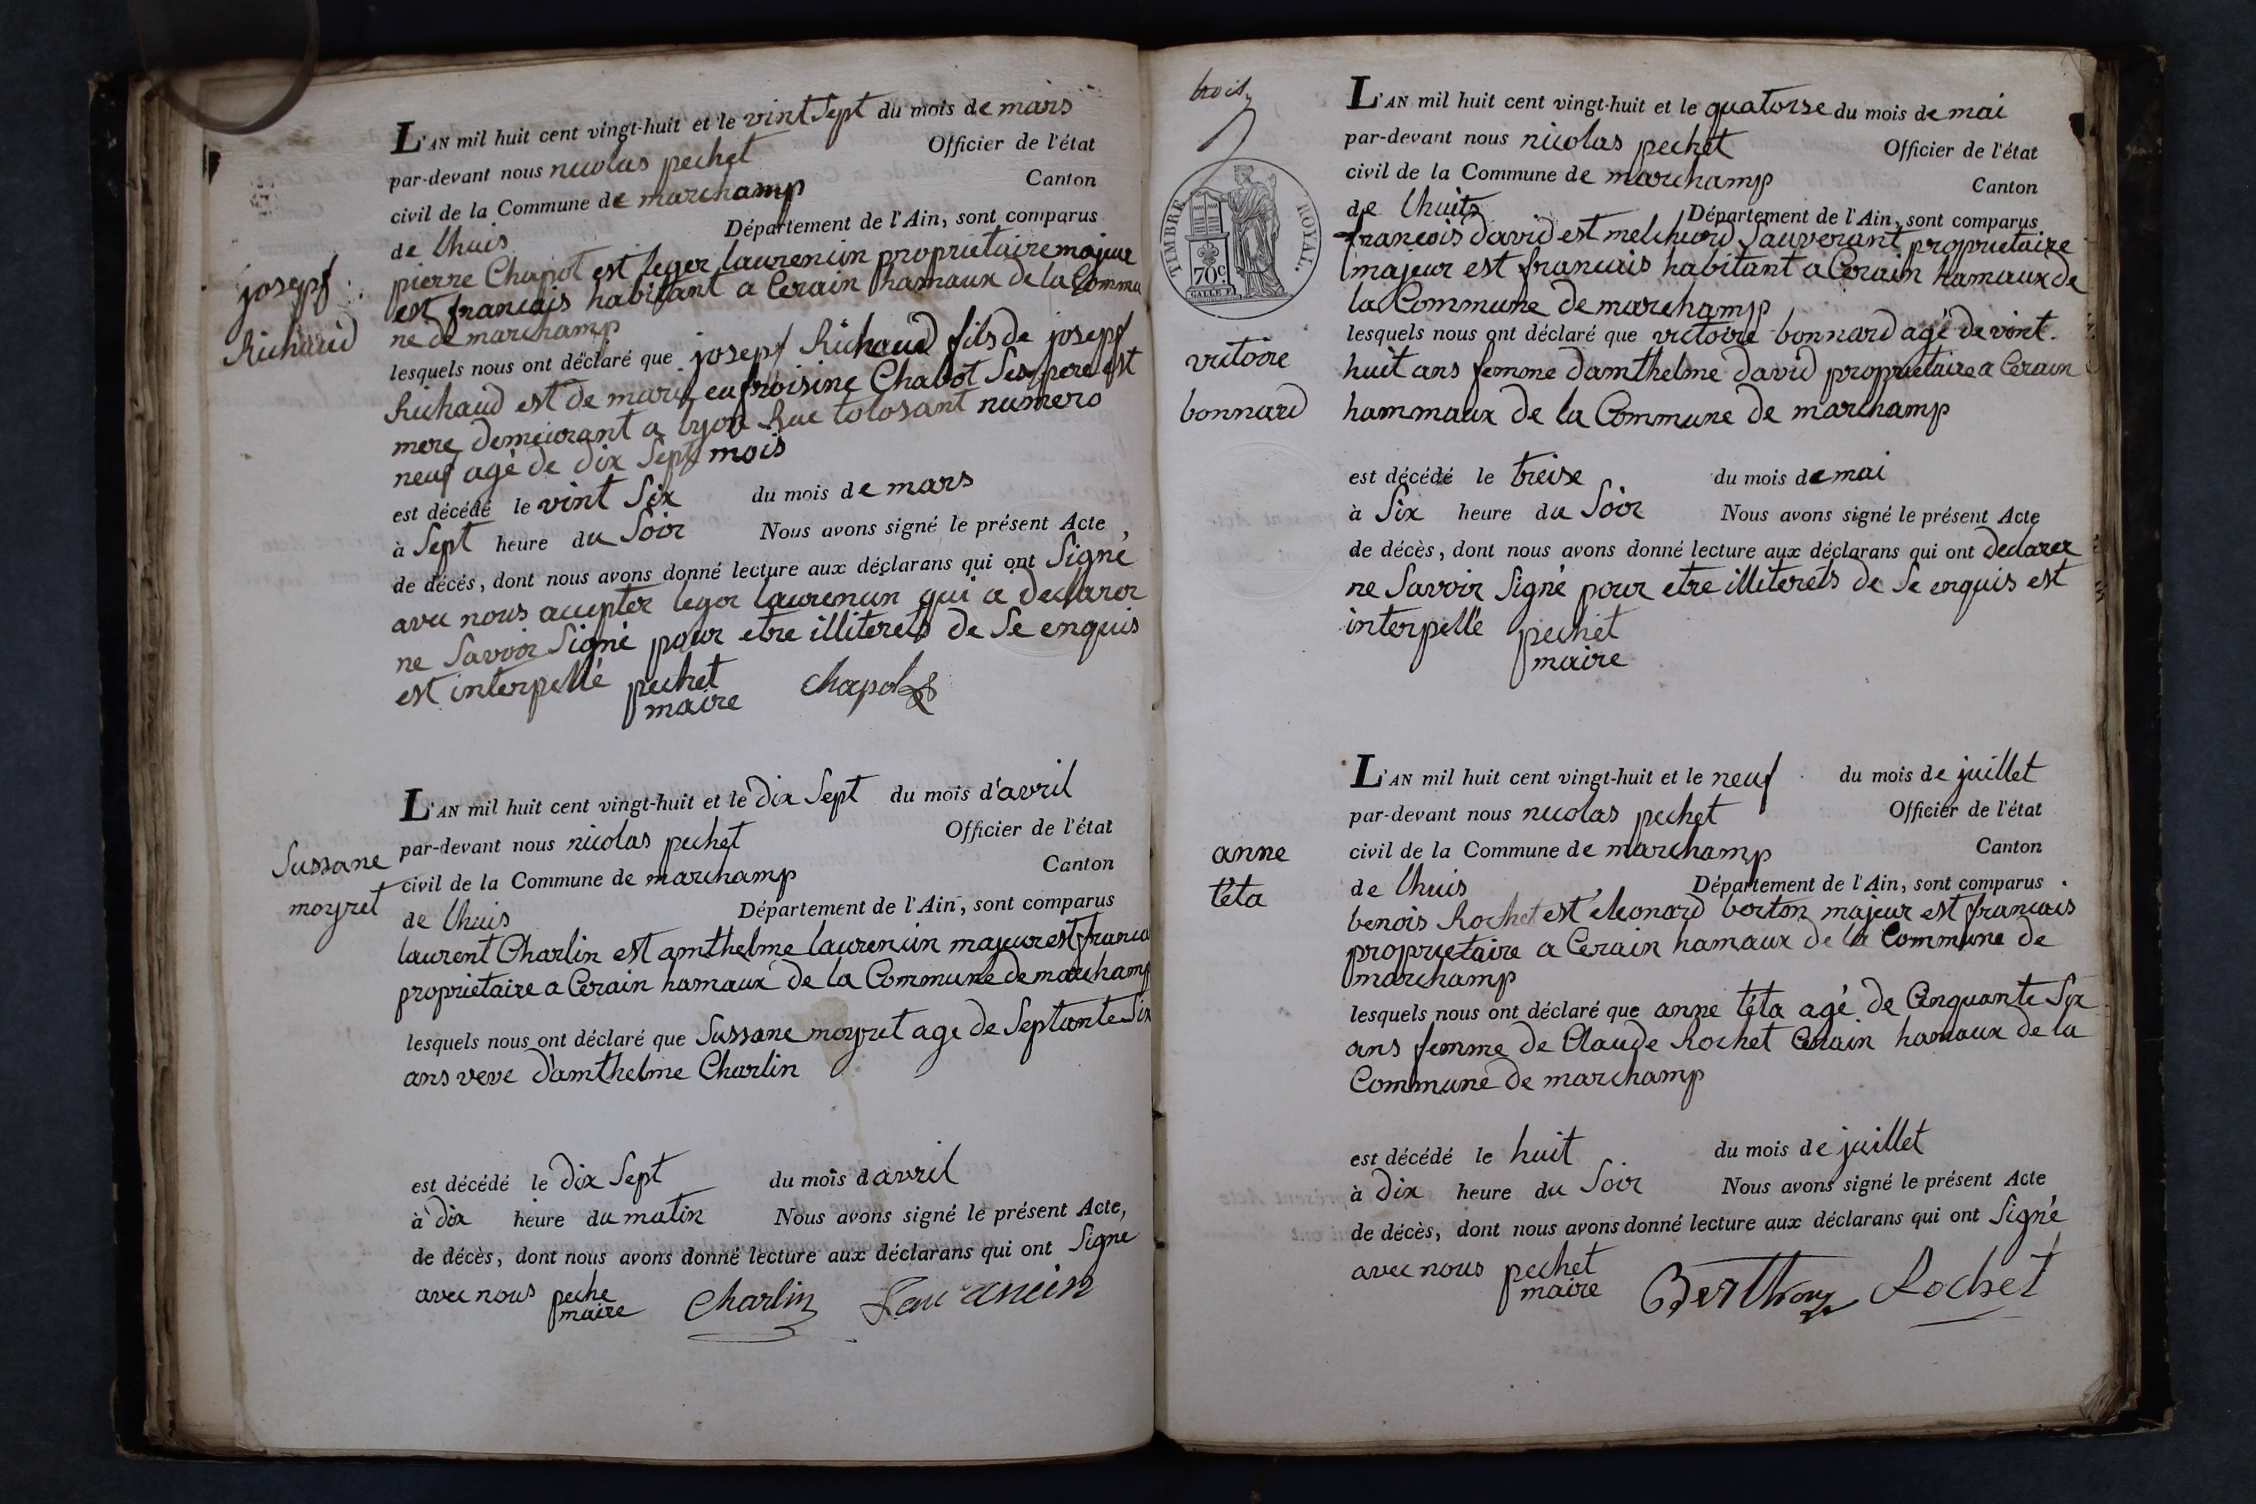 josepf
Richaud
L'AN mil huit cent vingt-huit et le vint Sept du mois de mars
par-devant nous nicolas pechet Officier de l'état
civil de la Commune de marchamp Canton
de lhuis Département de l'Ain, sont comparus
pierre Chapot est leger laurencin propriétaire majeur
est francais habitant a Cerain hamaux de la Commu
ne de marchamp
lesquels nous ont déclaré que josepf Richaud fils de josepf
Richaud est de marie eufroisine Chabot Ses pere est
mere demeurant a lyon Rue tolosant numero
neuf agé de dix Sept mois
est décédé le vint Six du mois de mars
à Sept heure du Soir Nous avons signé le présent Acte
de décés, dont nous avons donné lecture aux déclarans qui ont Signé
avec nous accepter leger laurencin qui a declarer
ne Savoir Signé pour etre illiterets de Se enquis
est interpellé pechet chapot
maire
Sussane
moyret
L'AN mil huit cent vingt-huit et le dix Sept du mois d'avril
par-devant nous nicolas pechet Officier de l'état
civil de la Commune de marchamp Canton
de lhuis Département de l'Ain, sont comparus
laurent Charlin est amthelme laurencin majeur est francai
proprietaire a Cerain hamaux de la Commune de marchamp
lesquels nous ont déclaré que Sussane moyret age de Septante Six
ans veve d'amthelme Charlin
est décédé le dix Sept du mois d avril
à dix heure du matin Nous avons signé le présent Acte,
de décès, dont nous avons donné lecture aux déclarans qui ont Signé
avec nous peche Charlin Laurancin
maire
trois
TIMBRE ROYAL.
70c.
victoire
bonnard
L'AN mil huit cent vingt-huit et le quatorse du mois de mai
par-devant nous nicolas pechet Officier de l'état
civil de la Commune de marchamp Canton
de lhuits Département de l'Ain, sont comparus
francois david est melchiord Sauverant proprietaire
majeur est francais habitant a Cerain hamaux de
la Commune de marchamp
lesquels nous ont déclaré que victoire bonnard agé de vint
huit ans femme d'amthelme david proprietaire a Cerain
hammaux de la Commune de marchamp
est décédé le treise du mois de mai
à Six heure du Soir Nous avons signé le présent Acte
de décès, dont nous avons donné lecture aux déclarans qui ont declarer
ne Savoir Signé pour etre illiterets de Se enquis est
interpellé pechet
maire
anne
téta
L'AN mil huit cent vingt-huit et le neuf du mois de juillet
par-devant nous nicolas pechet Officier de l'état
civil de la Commune de marchamp Canton
de lhuis Département de l'Ain, sont comparus
benois Rochet est éleonard berton majeur est francais
proprietaire a Cerain hamaux de la Commune de
marchamp
lesquels nous ont déclaré que anne téta agé de Cinquante Six
ans femme de Claude Rochet Cerain hamaux de la
Commune de marchamp
est décédé le huit du mois de juillet
à dix heure du Soir Nous avons signé le présent Acte
de décès, dont nous avons donné lecture aux déclarans qui ont Signé
avec nous pechet Berthon Rochet
maire